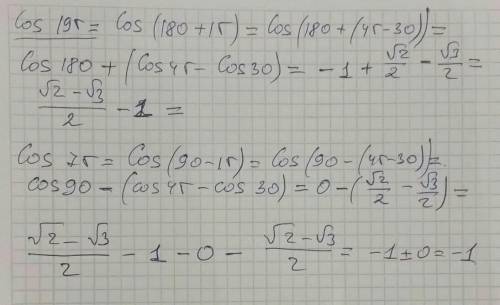 Cos 195 = Cos (180+15) = Cos(180+(45-30)) =
Cos 180 + (Cos 45 - Cos 30) = -1 + √2/2 - √3/2 =
(√2 - √3)/2 - 1 =
Cos 75 = Cos (90-15) = Cos (90-(45-30)) =
cos 90 - (cos 45 - cos 30) = 0 - (√2/2 - √3/2) =
(√2 - √3)/2 - 1 - 0 - (√2 - √3)/2 = -1 ± 0 = -1